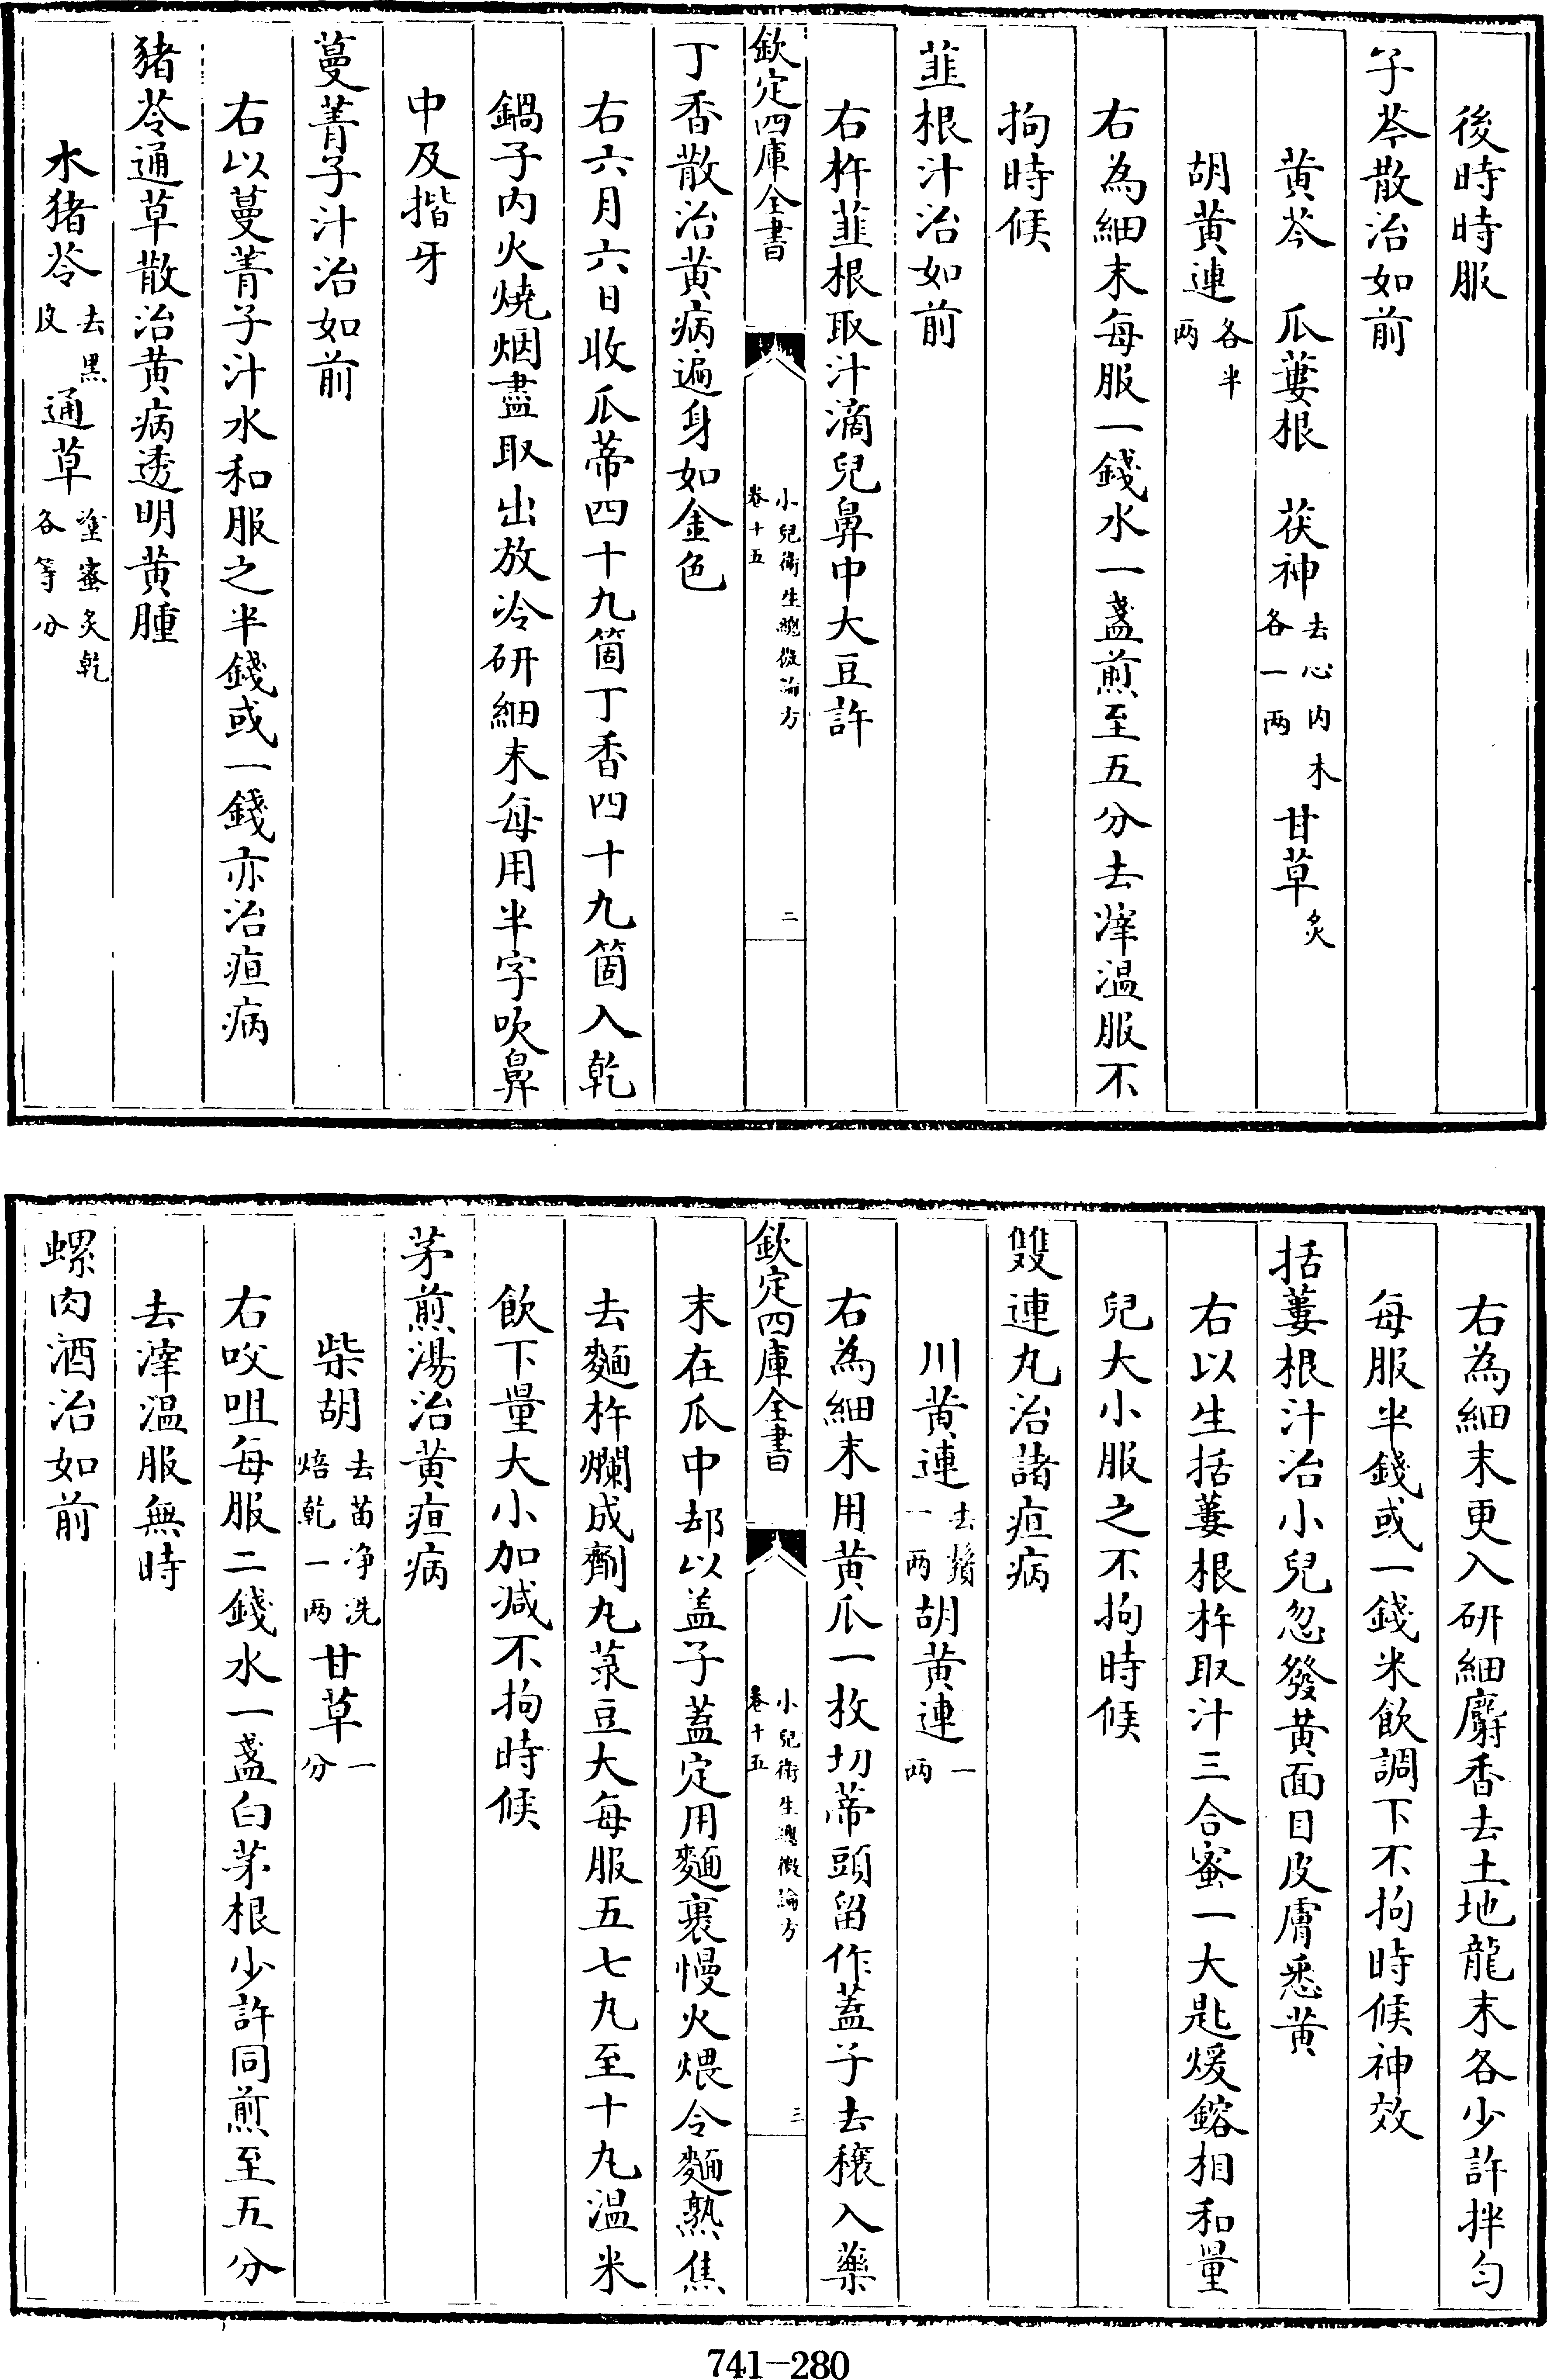 後時時服
子芩散治如前
黄芩　瓜蔞根　茯神去心内木各一两　甘草炙
胡黄連各半两
右為細末每服一錢水一盞煎至五分去滓温服不
拘時候
韮根汁治如前
右杵韮根取汁滴兒鼻中大豆許
欽定四庫全書　小兒衛生總微論方卷十五　二
丁香散治黄病遍身如金色
右六月六日收瓜蒂四十九箇丁香四十九箇入乾
鍋子内火燒烟盡取出放冷研細末每用半字吹鼻
中及揩牙
蔓菁子汁治如前
右以蔓菁子汁水和服之半錢或一錢亦治疸病
猪苓通草散治黄病透明黄腫
木猪苓去黒皮　通草塗蜜炙乾各等分
右為細末更入研細麝香去土地龍末各少許拌匀
每服半錢或一錢米飲調下不拘時候神效
括蔞根汁治小兒忽發黄面目皮膚悉黄
右以生括蔞根杵取汁三合蜜一大匙煖鎔相和量
兒大小服之不拘時候
雙連丸治諸疸病
川黄連去鬚一两　胡黄連一两
右為細末用黄瓜一枚切蒂頭留作蓋子去穣入藥
欽定四庫全書　小兒衛生總微論方卷十五　三
末在瓜中却以盖子蓋定用麵裹慢火煨令麵熟焦
去麵杵爛成劑丸菉豆大每服五七丸至十丸温米
飲下量大小加减不拘時候
茅煎湯治黄疸病
柴胡去苗净洗焙乾一两　甘草一分
右㕮咀每服二錢水一盞白茅根少許同煎至五分
去滓温服無時
螺肉酒治如前
741-280